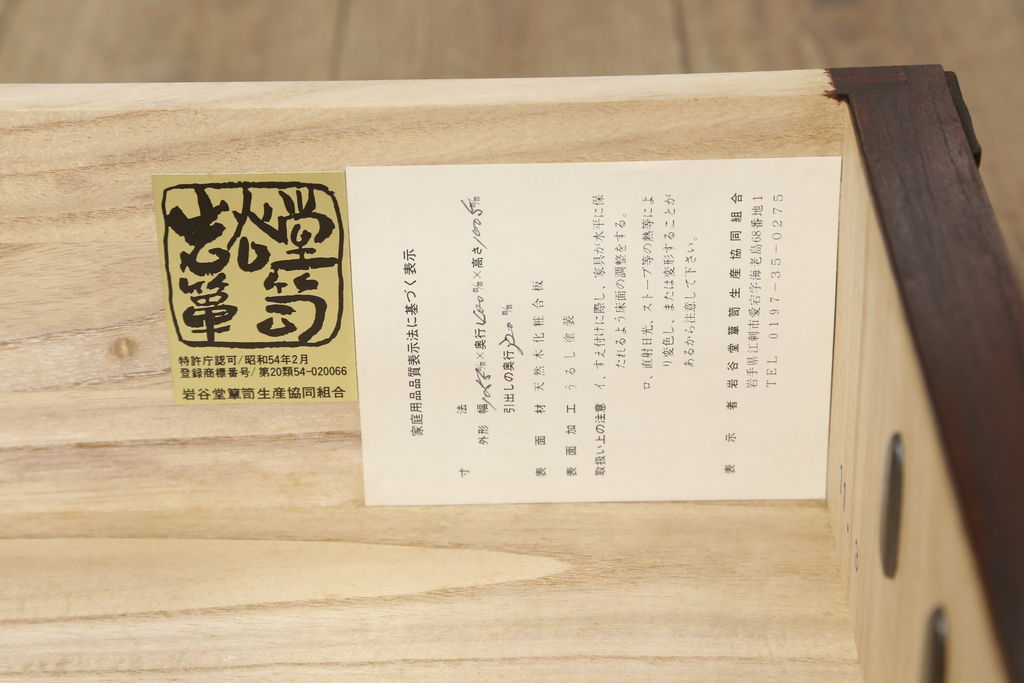 岩谷堂箪笥
特許庁認可/昭和54年2月
登録商標番号/第20類54-020066
岩谷堂簞笥生産協同組合
家庭用品品質表示法に基づく表示
寸 法
外形 幅 ㎜×奥行 ㎜×高さ1005㎜
引出しの奥行 ㎜
表面材 天然木化粧合板
表面加工 うるし塗装
取扱い上の注意 イ、すえ付けに際し、家具が水平に保
たれるよう床面の調整をする。
ロ、直射日光、ストーブ等の熱等によ
り変色し、または変形することが
あるから注意して下さい。
表示者 岩谷堂簞笥生産協同組合
岩手県江刺市愛宕字海老島68番地1
TEL 0197-35-0275